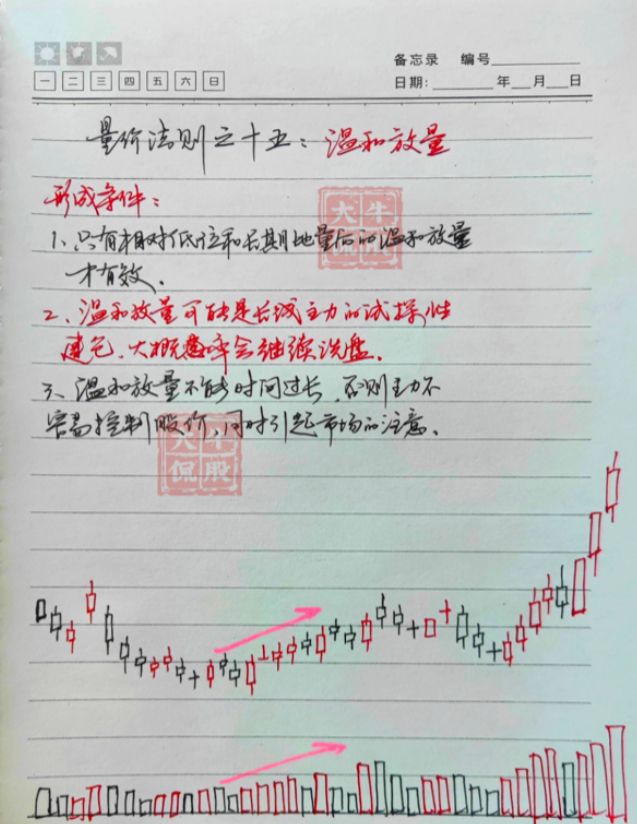 备忘录 编号
一 二 三 四 五 六 日
日期: 年 月 日
量价法则之十五：温和放量
形成条件：
1、只有相对低位和长期地量后的温和放量
才有效．
2、温和放量可能是长线主力的试探性
建仓．大概率会继续洗盘．
3、温和放量不能时间过长．否则主力不
容易控制股价，同时引起市场的注意．
大牛
侃股
大牛
侃股